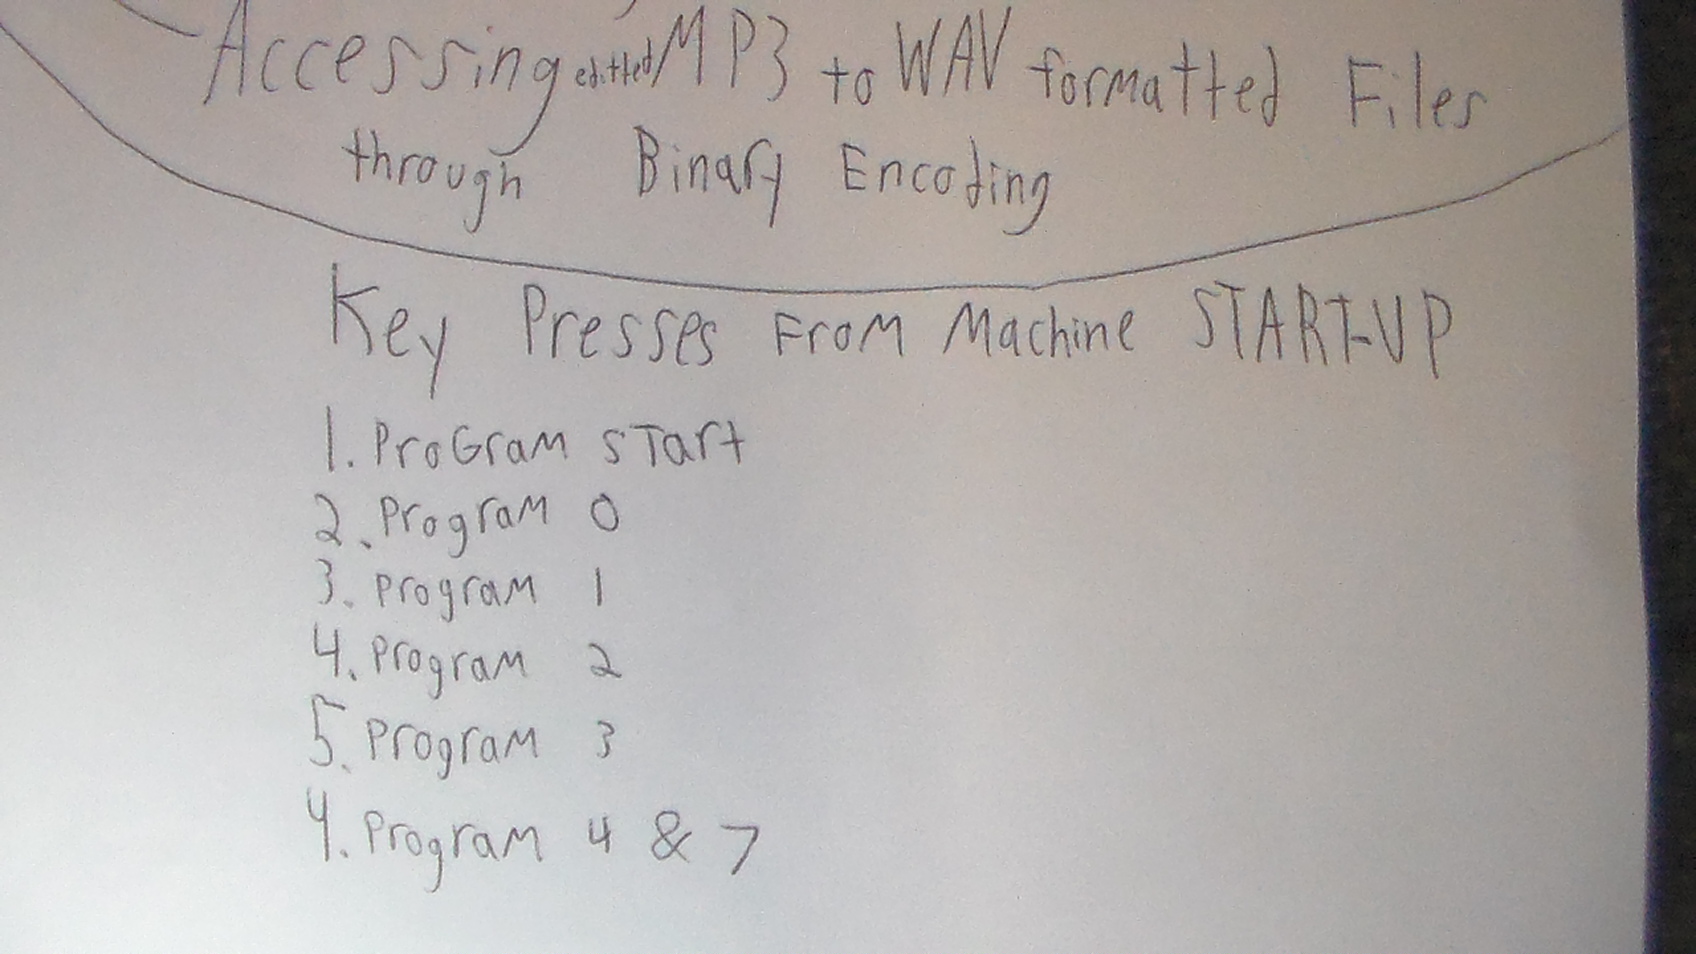 Accessing editted MP3 to WAV formatted Files
through Binary Encoding
Key Presses From Machine START-UP
1. ProGram sTart
2. Program 0
3. Program 1
4. Program 2
5. Program 3
4. Program 4 & 7